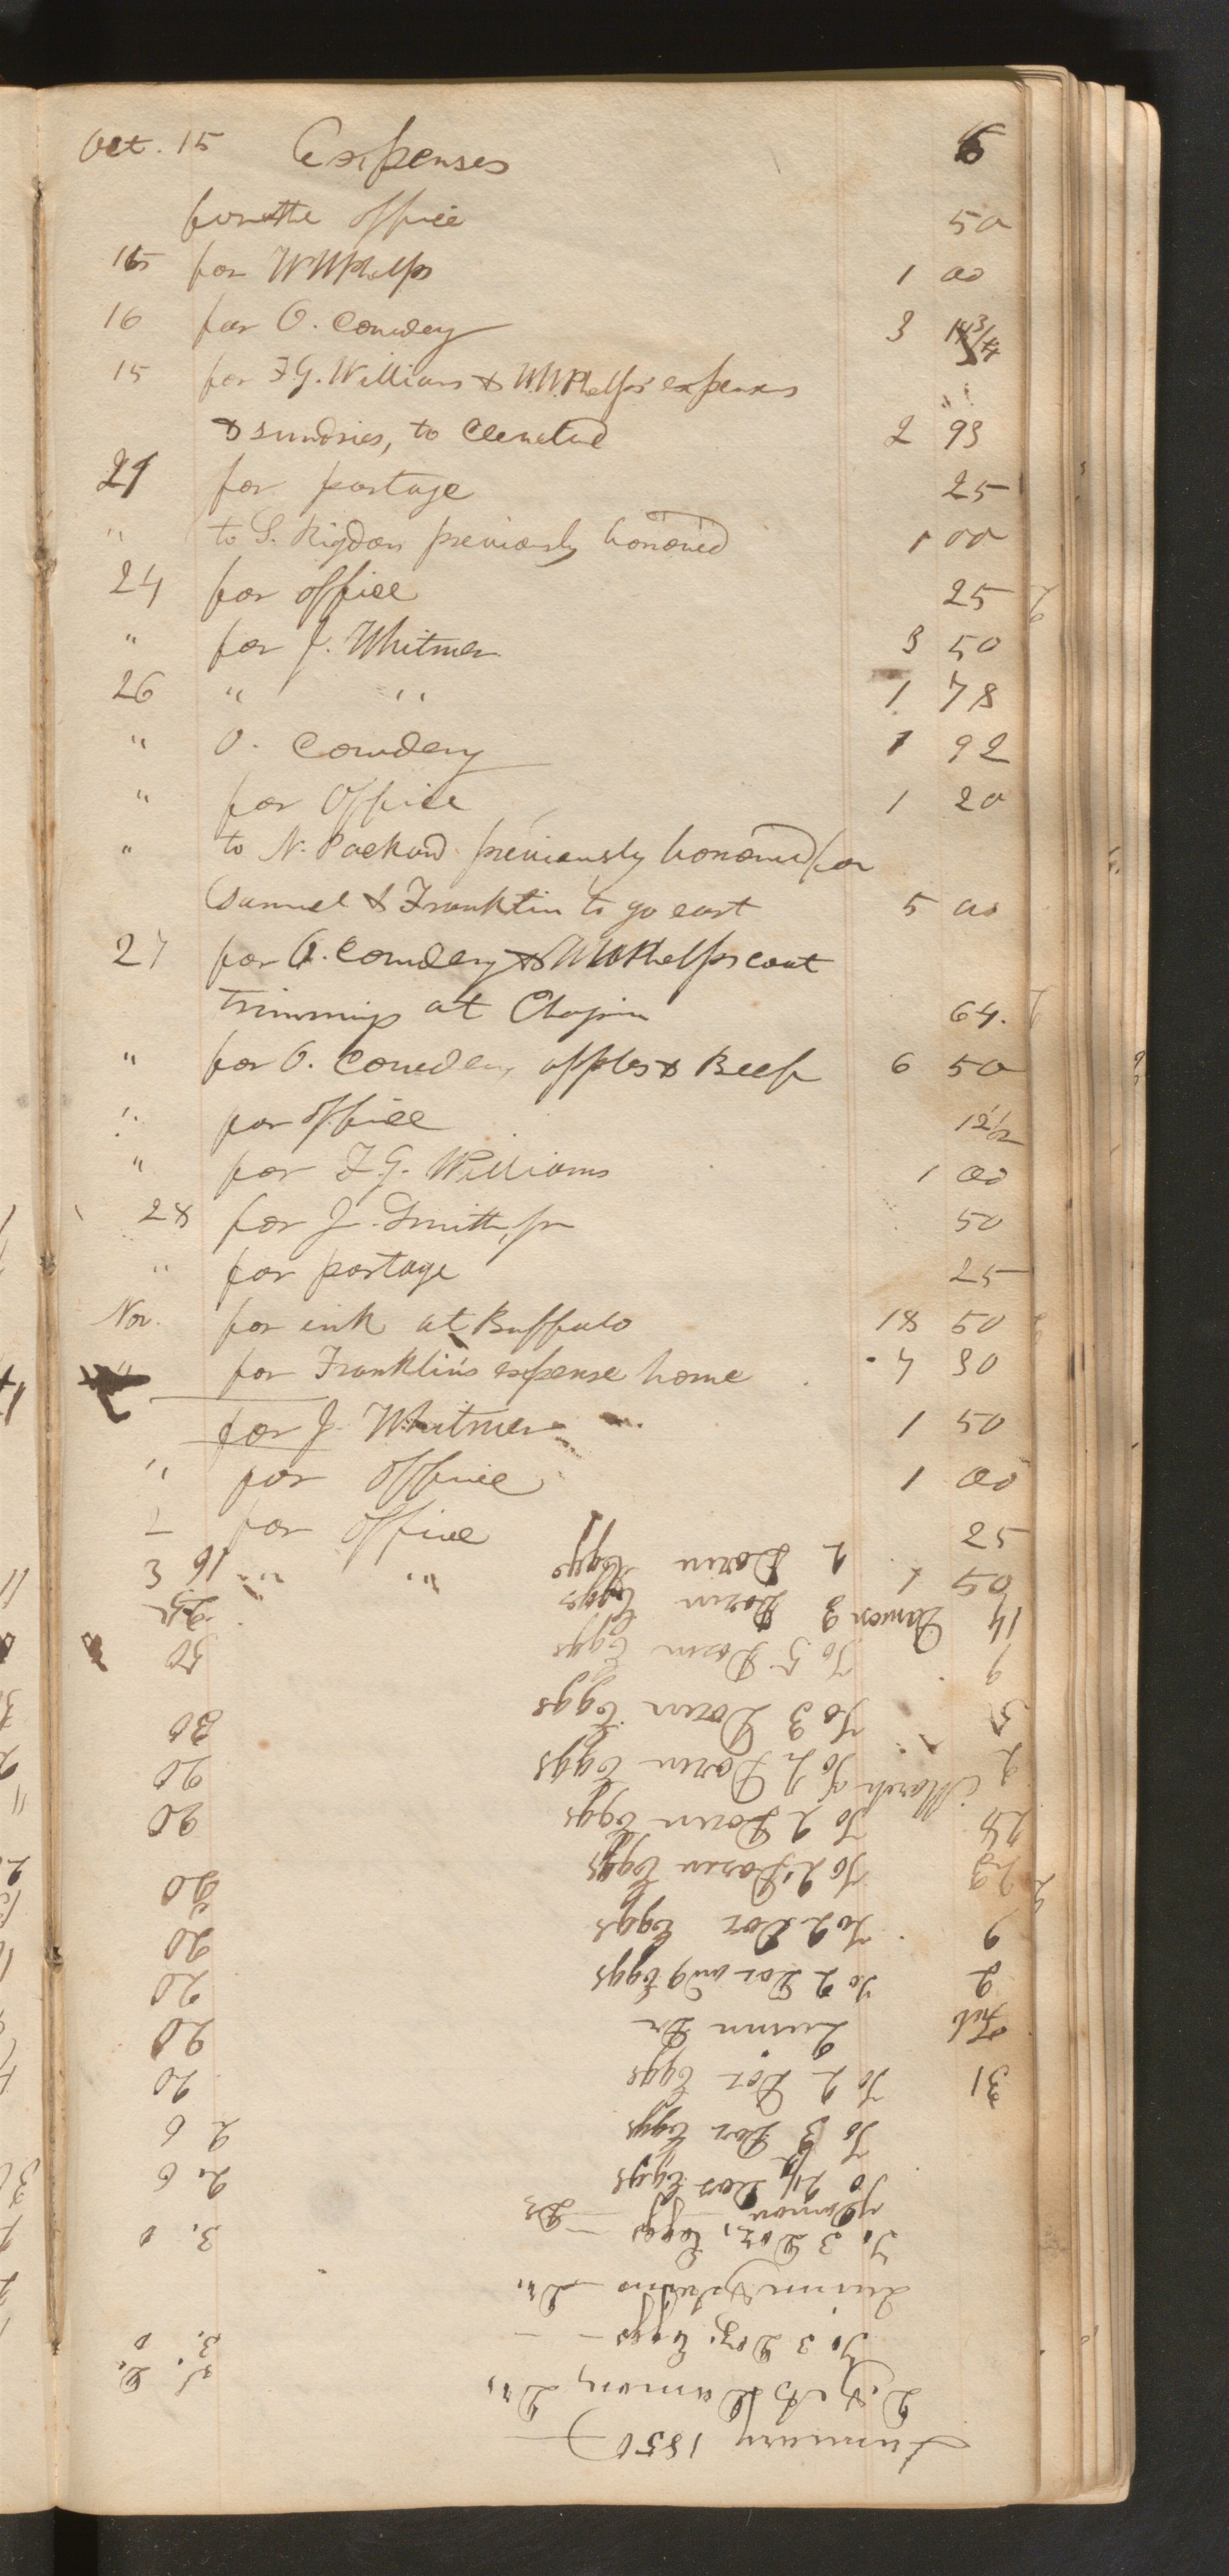 Oct. 15 Expenses 6
for the office 50
15 for W W Phelps 1 00
16 for O. Cowdery 3
15 for F. G. Williams & W. W. Phelps' expenses
& sundries, to Cleveland 2 93
21 for postage 25
" to S. Rigdon previously borrowed 1 00
24 for office 25
" for J. Whitmer 3 50
26 " " 1 78
" O. Cowdery 1 92
" for Office 1 20
" to N. Packard previously borrowed for
Samuel & Franklin to go east 5 00
27 for O. Cowdery & W W Phelps coat
trimmings at Chapin 64.
" for O. Cowdery apples & Beef 6 50
" for office 12 1/2
" for F. G. Williams 1 00
28 for J. Smith, jr 50
" for postage 25
Nov. for ink at Buffalo 18 50
" for Franklin's expense home 7 30
for J. Whitmer 1 50
" for office 1 00
for office 25
" 1 50
January 1850
Damon, Dr,
To 3 Doz. Eggs — 3. 0
Quinn Dr.
To 3 Doz, Eggs — 3. 0
Damon Dr
To 2 1/2 Doz Eggs 2. 6
To 3 Doz Eggs 2 6
31 To 2 Doz Eggs 20
Feb Quinn Dr 20
2 To 2 Doz Eggs 20
9 To 2 Doz Eggs 20
23 To 2 Dozen Eggs 20
28 To 2 Dozen Eggs 20
2 March To 2 Dozen Eggs 20
5 To 3 Dozen Eggs 30
9 To 5 Dozen Eggs 50
14 Damon 3 Dozen Eggs
2 Dozen Eggs